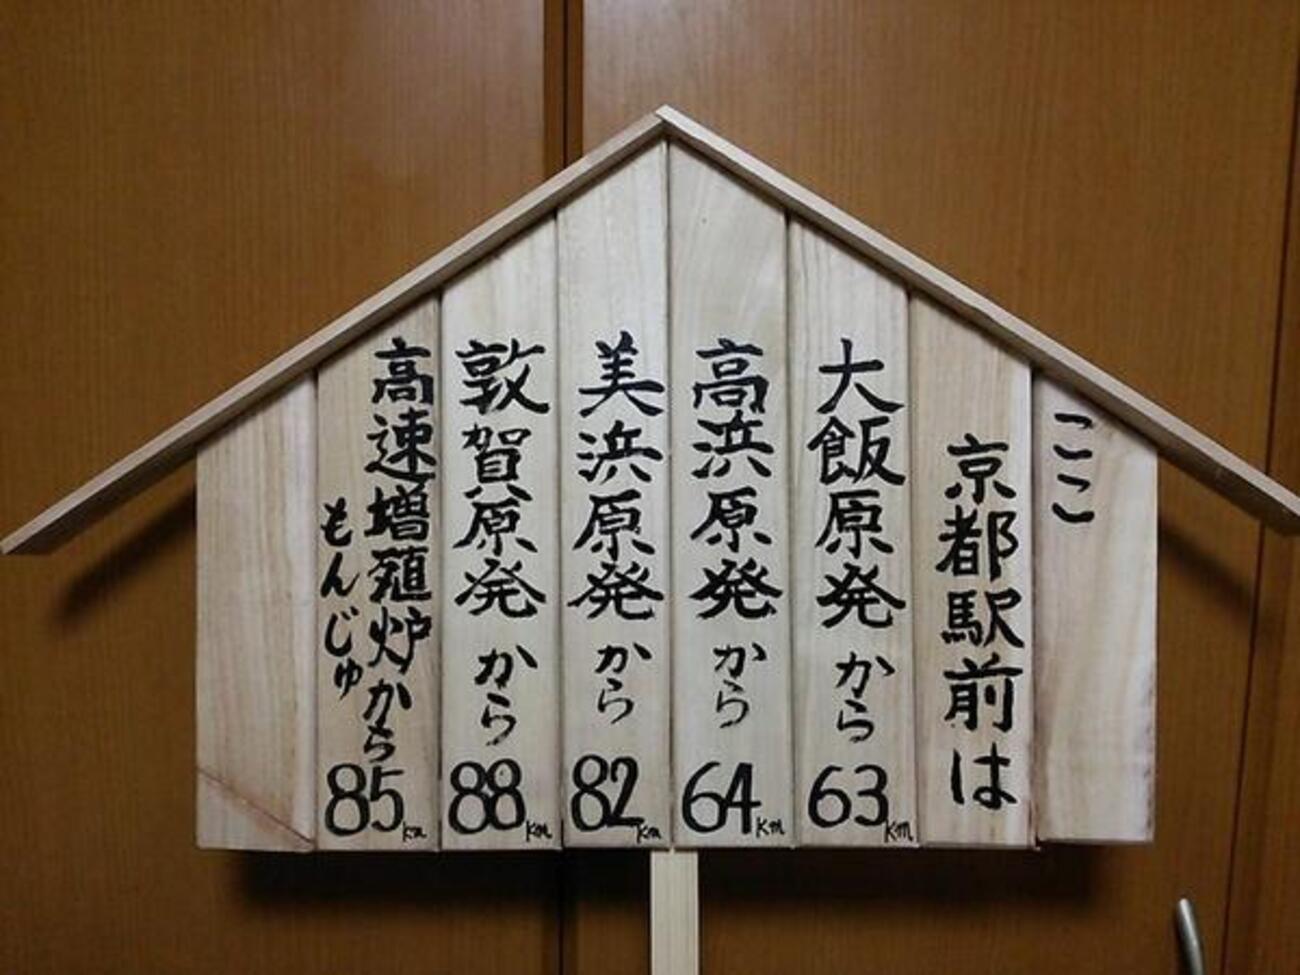 ここ
京都駅前は
大飯原発から63km
高浜原発から64km
美浜原発から82km
敦賀原発から88km
高速増殖炉から85km
もんじゅ